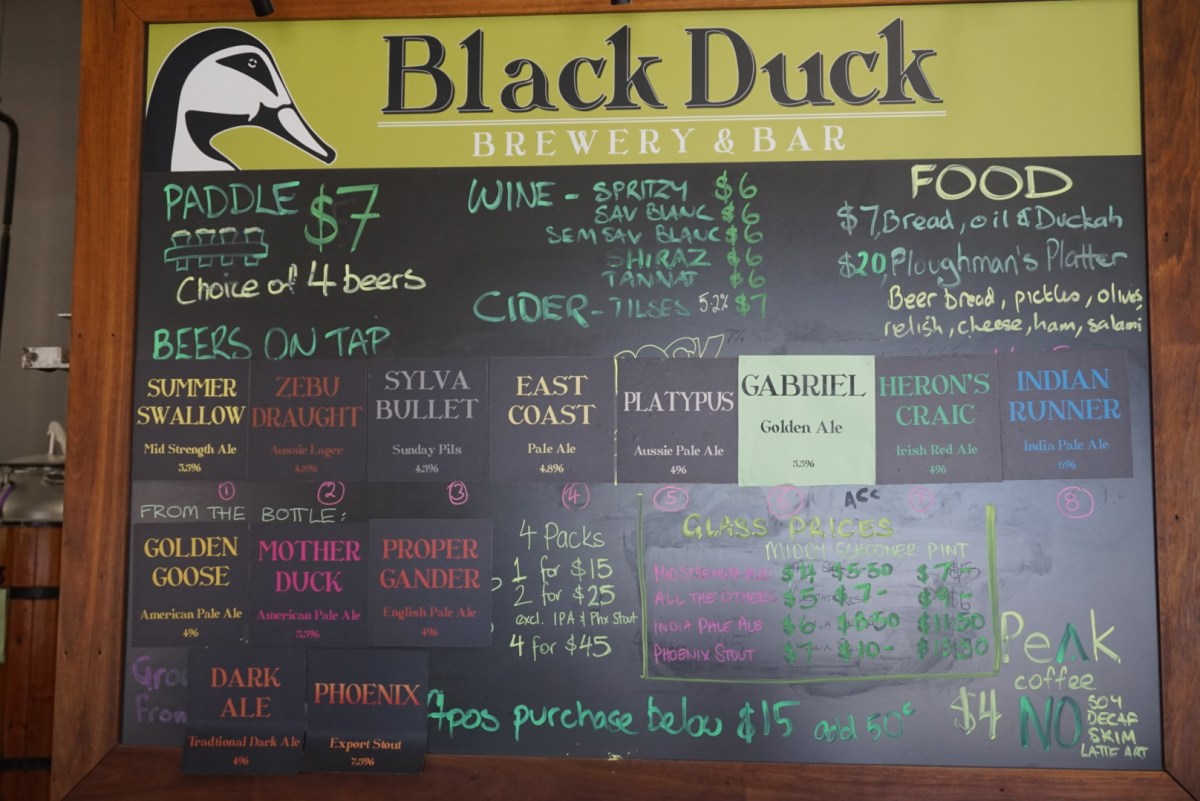 Black Duck
BREWERY & BAR
PADDLE $7
Choice of 4 beers
WINE - SPRITZY $6
SAV BLANC $6
SEM SAV BLANC $6
SHIRAZ $6
TANNAT $6
CIDER - TILSES 5.2% $7
FOOD
$7, Bread, oil & Duckah
$20, Ploughman's Platter
Beer bread, pickles, olives
relish, cheese, ham, salami
BEERS ON TAP
7%
SUMMER
SWALLOW
Mid Strength Ale
3.3%
ZEBU
DRAUGHT
Aussie Lager
4.8%
SYLVA
BULLET
Sunday Pils
4.3%
EAST
COAST
Pale Ale
4.8%
PLATYPUS
Aussie Pale Ale
4%
GABRIEL
Golden Ale
HERON'S
CRAIC
Irish Red Ale
4%
INDIAN
RUNNER
India Pale Ale
6%
1 2 3 4 5 8
FROM THE BOTTLE:
GOLDEN
GOOSE
American Pale Ale
4%
MOTHER
DUCK
American Pale Ale
PROPER
GANDER
English Pale Ale
4%
DARK
ALE
Tradtional Dark Ale
4%
PHOENIX
Export Stout
7.5%
4 Packs
1 for $15
2 for $25
excl. IPA & Phx Stout
4 for $45
GLASS PRICES
MIDDY SCHOONER PINT
MID STRENGTH ALE $4 $5-50
ALL THE OTHERS $5 $7-
INDIA PALE ALE $6 $8-50 $11-50
PHOENIX STOUT $7 $10-
Efpos purchase below $15 add 50c
Peak
coffee
$4
NO
SOY
DECAF
SKIM
LATTE ART